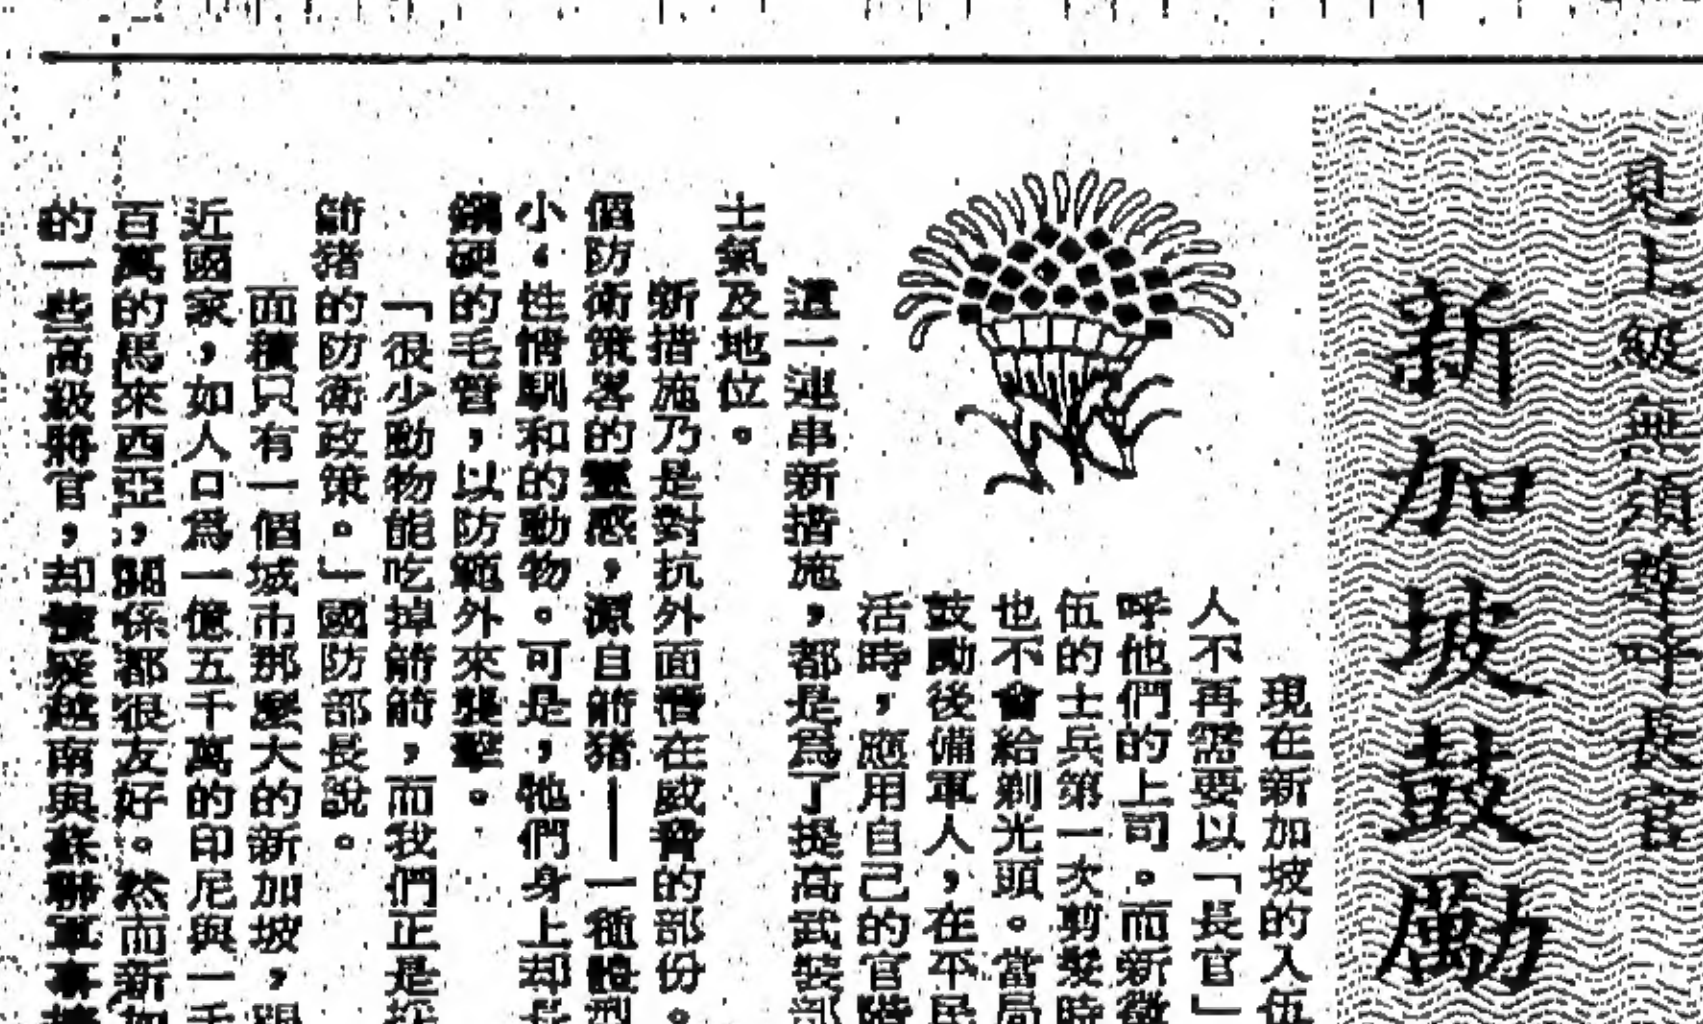 見上級無須尊呼長官
新加坡鼓勵
現在新加坡的入伍
人不再需要以「長官」
呼他們的上司。而新徵
伍的士兵第一次剪髮時
也不會給剃光頭。當局
鼓勵後備軍人,在平民
活時,應用自己的官階
這一連串新措施,都是爲了提高武裝部
士氣及地位。
新措施乃是對抗外面潛在威脅的部份。
個防衛策畧的靈感,源自箭猪——一種體型
小,性情馴和的動物。可是,牠們身上却長
鋼硬的毛管,以防範外來襲擊。
「很少動物能吃掉箭箭,而我們正是採
箭猪的防衛政策。」國防部長說。
面積只有一個城市那麼大的新加坡,跟
近國家,如人口爲一億五千萬的印尼與一千
百萬的馬來西亞,關係都很友好。然而新加
的一些高級將官,却懷疑越南與蘇聯軍事